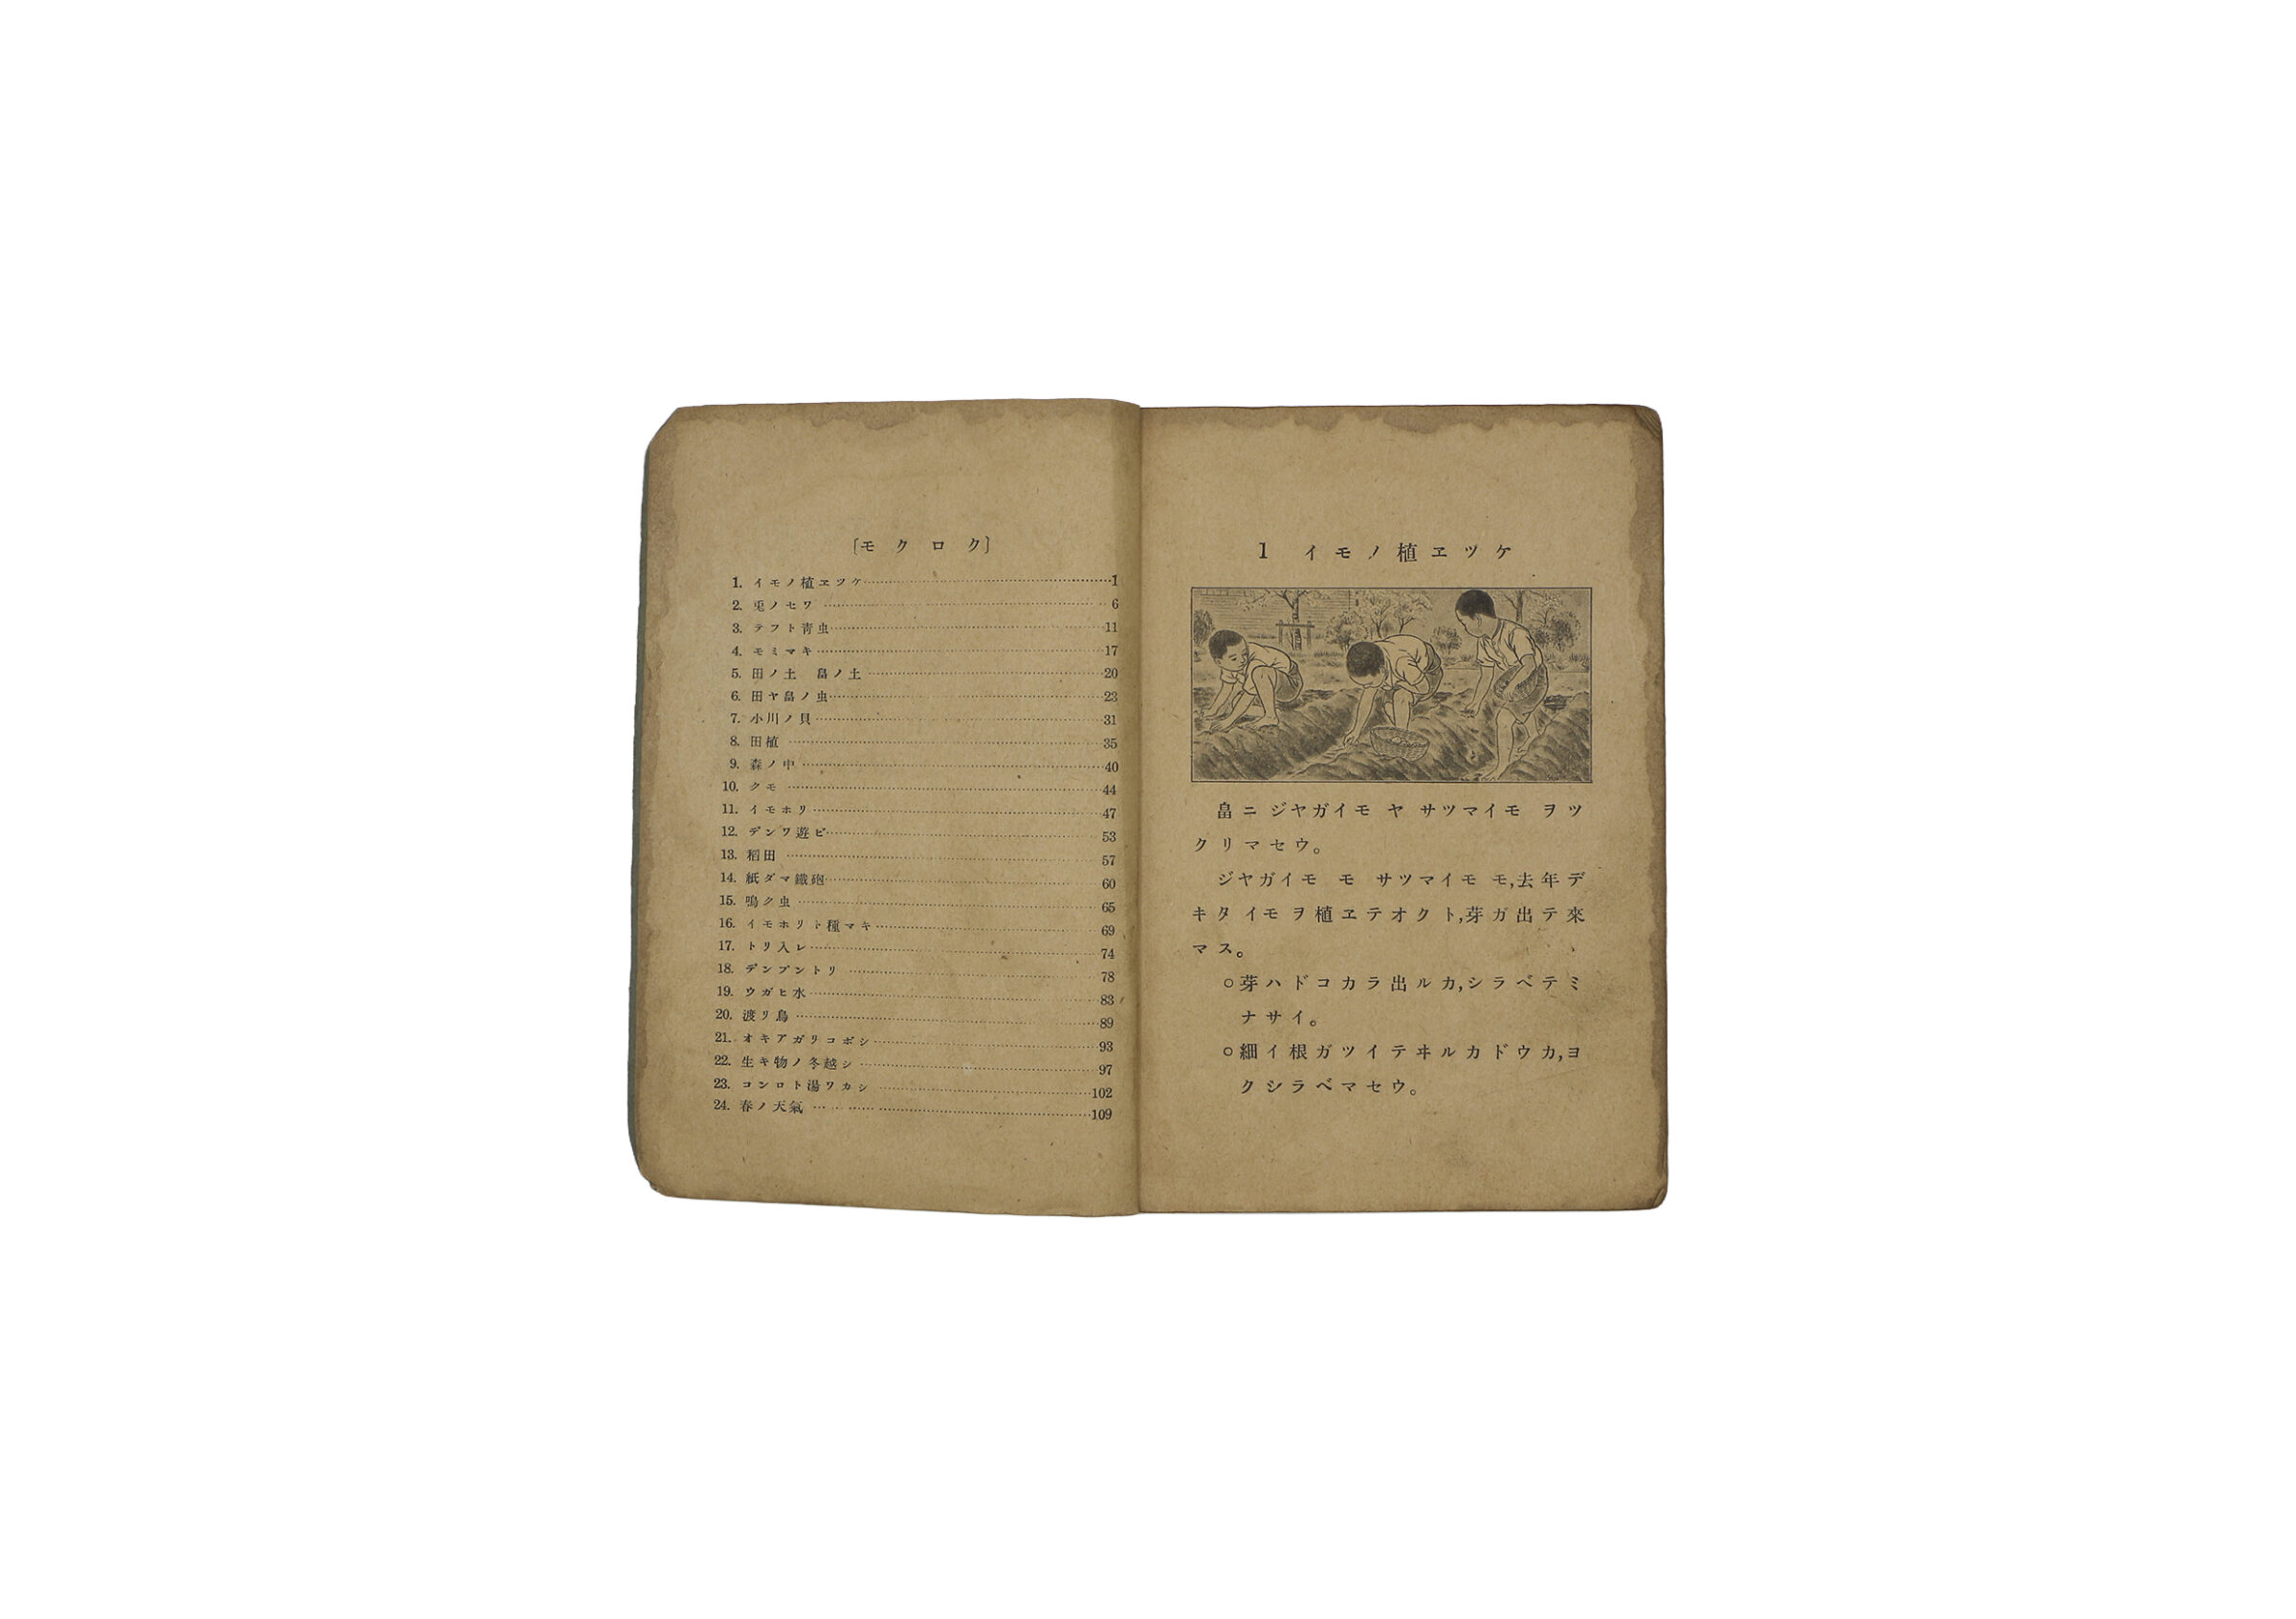 〔モクロク〕
1. イモノ植ヱツケ……1
2. 兎ノセワ……6
3. テフト靑虫……11
4. モミマキ……17
5. 田ノ土　畠ノ土……20
6. 田ヤ畠ノ虫……23
7. 小川ノ貝……31
8. 田植……35
9. 森ノ中……40
10. クモ……44
11. イモホリ……47
12. デンワ遊ビ……53
13. 稻田……57
14. 紙ダマ鐵砲……60
15. 鳴ク虫……65
16. イモホリト種マキ……69
17. トリ入レ……74
18. デンプントリ……78
19. ウガヒ水……83
20. 渡リ鳥……89
21. オキアガリコボシ……93
22. 生キ物ノ冬越シ……97
23. コンロト湯ワカシ……102
24. 春ノ天氣……109
1 イモノ植ヱツケ
畠ニ ジヤガイモ ヤ サツマイモ ヲツ
クリマセウ。
ジヤガイモ モ サツマイモ モ,去年デ
キタイモヲ植ヱテオクト,芽ガ出テ來
マス。
○芽ハドコカラ出ルカ,シラベテミ
ナサイ。
○細イ根ガツイテヰルカドウカ,ヨ
クシラベマセウ。